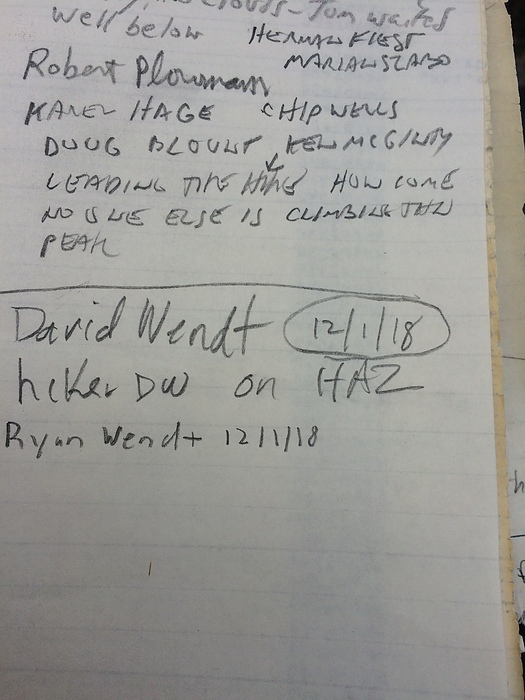 the clouds - Tom waited
well below HERMAN KIEST
MARIAN SZABO
Robert Plowmann
KAREN HAGE CHIP WELLS
DOUG BLOUNT, KEN MCGINTY
LEADING THE HIKE HOW COME
NO ONE ELSE IS CLIMBING THIS
PEAK
David Wendt 12/1/18
hiker DW on HAZ
Ryan Wendt 12/1/18